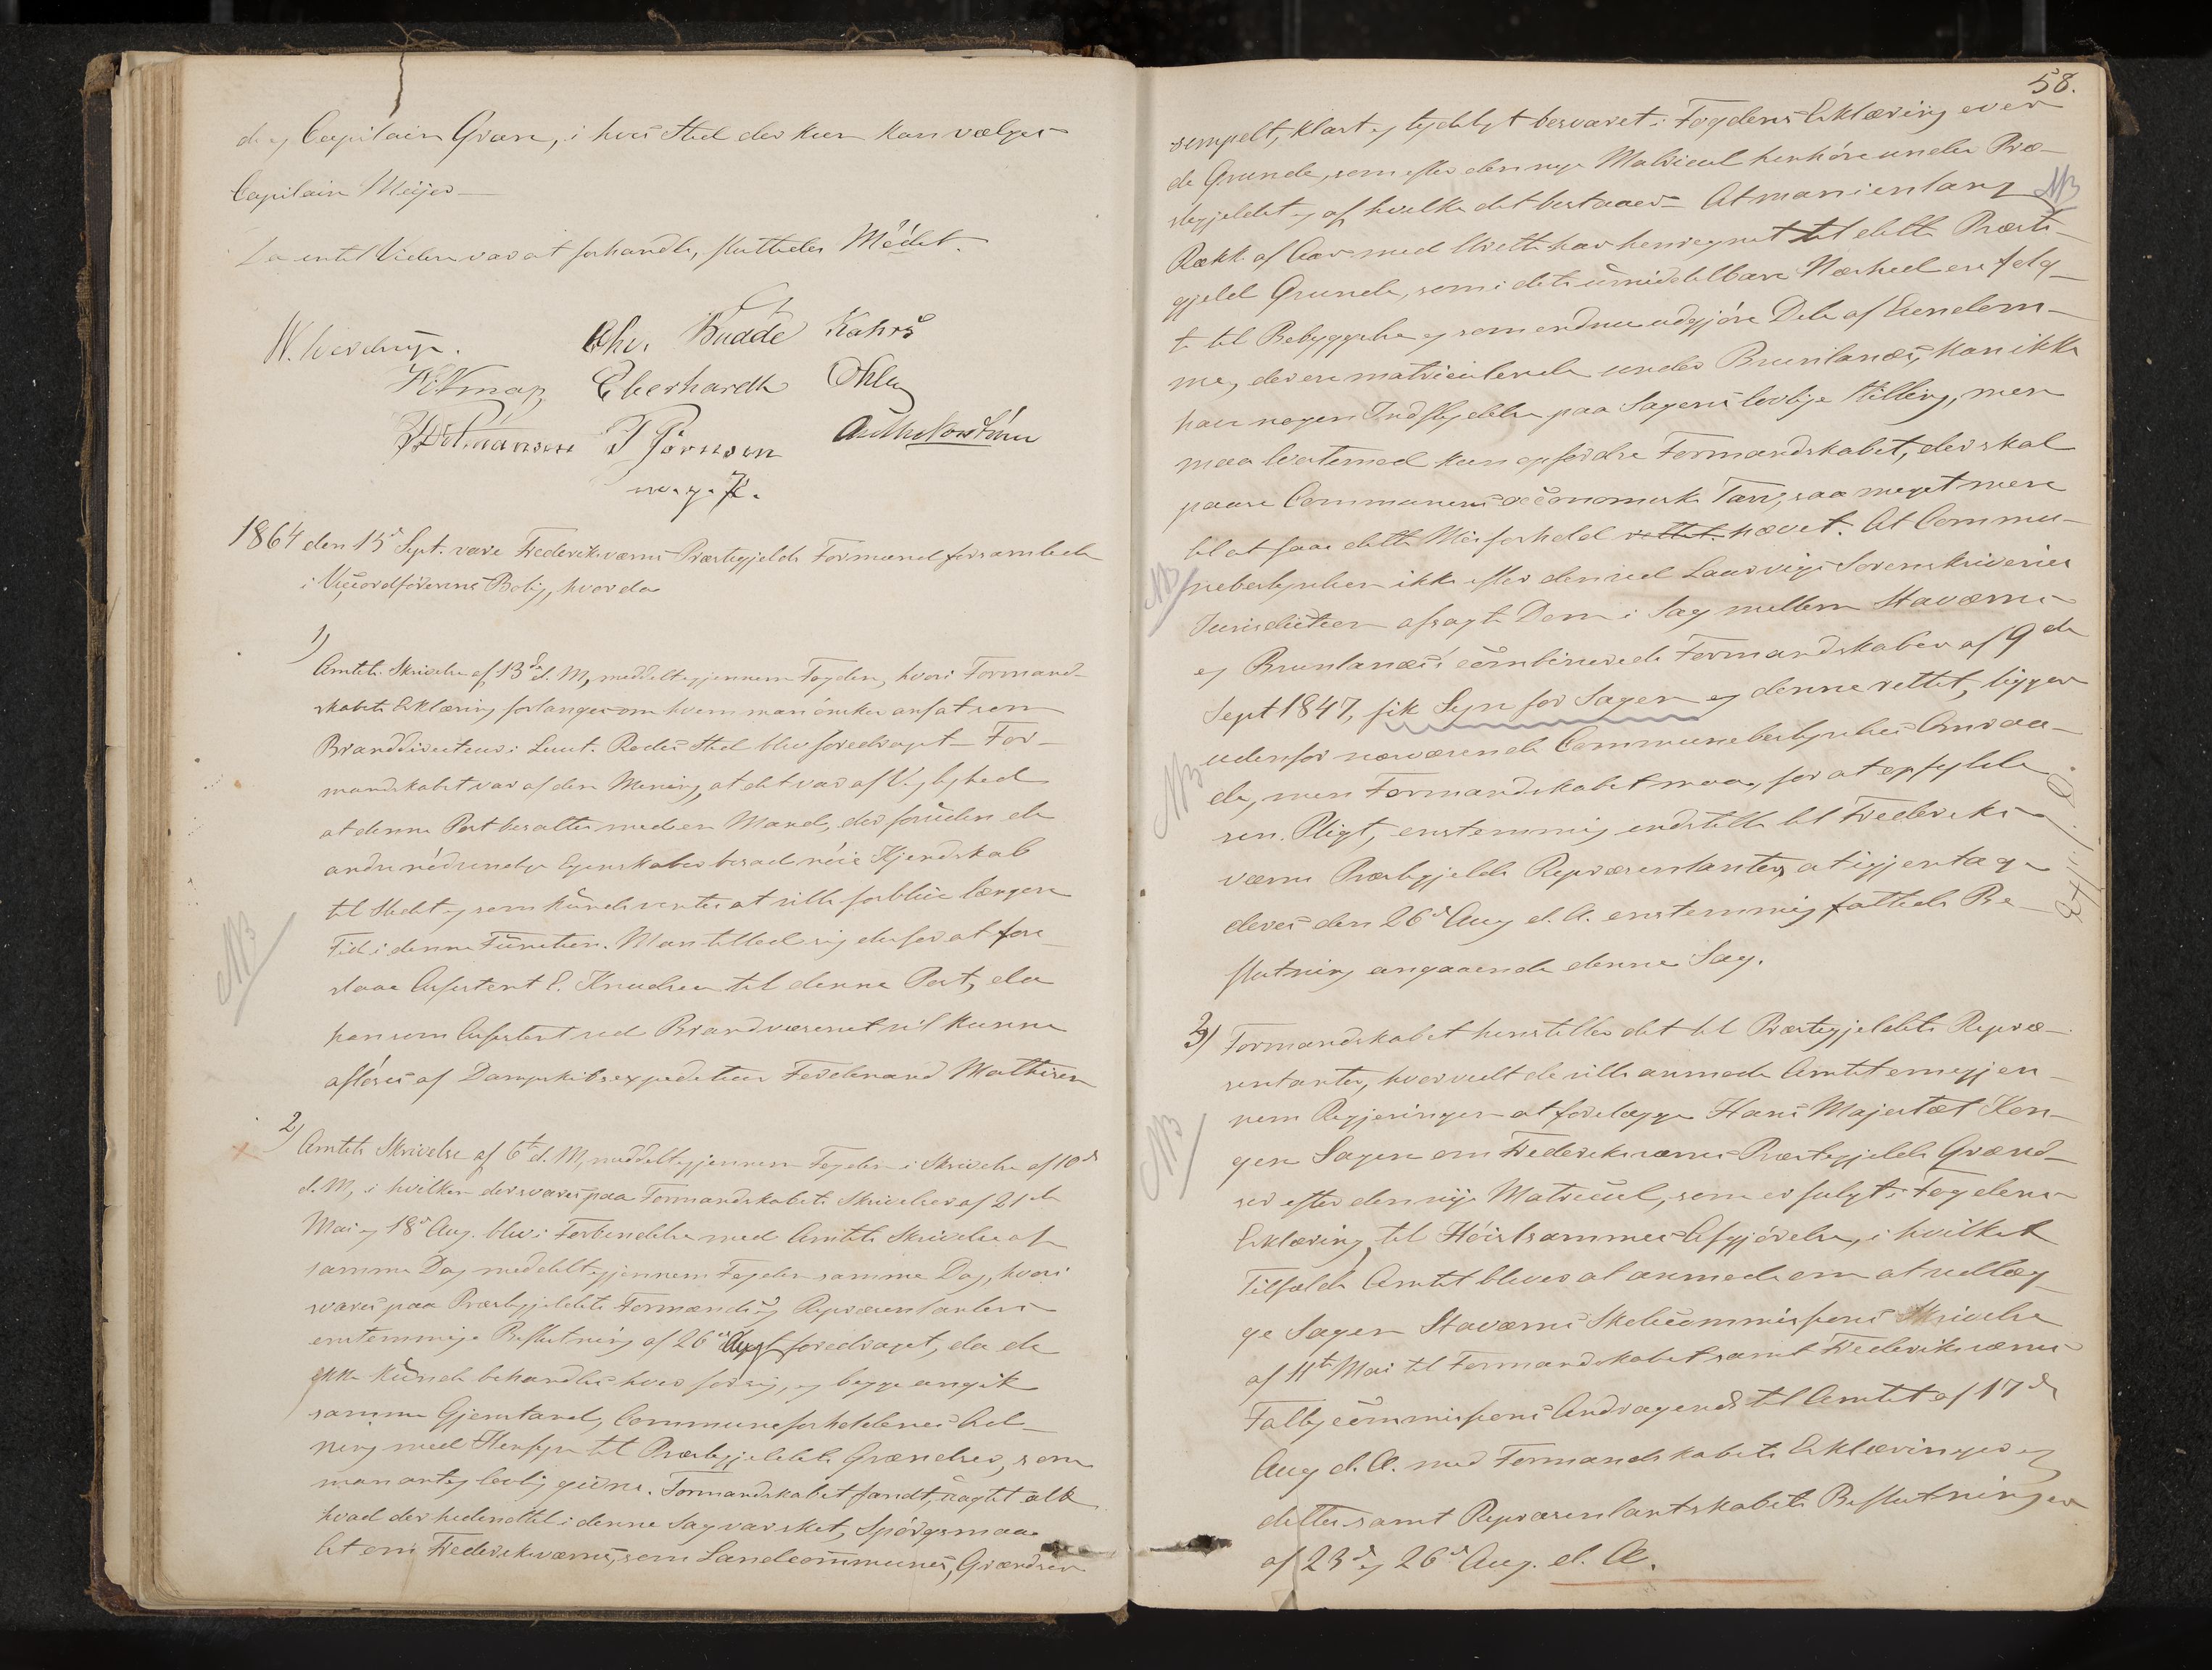 d. y Capitain Gran, i hvis Sted der kun kan vælges
Capitain Meijer
Da intet Videre var at forhandle, sluttedes Mödet.
Chr. Budde Kahrs
Eberhardt Ohls
T Jörnsen
m. p. P.
1864 den 15d Sept. vare Frederiksværns Præstegjelds Formænd forsamlede
i Viceordförerens Bolig, hvor da
1)
Amtets Skrivelse af 13de d. M, meddelt igjennem Fogden, hvori Formand-
skabets Erklæring forlanges om hvem man önsker ansat som
Branddirecteur i Leut. Rodes Sted blev foredraget – For-
mandskabet var af den Mening, at det var af Vigtighed
at denne Post besattes med en Mand, der foruden de
andre nödvendige Egenskaber besad nöie Kjendskab
til Stedet og som kunde ventes at ville forblive længere
Tid i denne Function. Man tillod sig derfor at fore-
slaae Assistent C. Knudsen til denne Post, da
han som Assistent ved Brandvæsenet vil kunne
aflöses af Dampskibsexpediteur Ferdinand Mathisen
NB
2)
Amtets Skrivelse af 6te d. M, meddelt igjennem Fogden i Skrivelse af 10d
d. M, i hvilken der svares paa Formandskabets Skrivelser af 21de
Mai og 18d Aug. blev i Forbindelse med Amtets Skrivelse af
samme Dag meddelt igjennem Fogden samme Dag, hvori
svares paa Præstegjeldets Formænds og Repræsentanters
enstemmige Beslutning af 26d Augt foredraget, da de
ikke kunde behandles hver for sig, og begge angik
samme Gjenstand, Communeforholdenes
med Hensyn til Præstegjeldets Grændser, som
man antog lovlig givne. Formandskabet fandt, uagtet alt
hvad der hidindtil i denne Sag var sket, Spörgsmaa-
let om Frederiksværns, som Landcommunes, Grændser
58.
simpelt, klart og tydeligt besvaret i Fogdens Erklæring over
de Grunde, som efter den nye Matricul henhöre under Præ-
stegjeldet og af hvilke det bestaaer – At man i en lang
NB
Række af Aar med Urette har henregnet til dette Præste-
gjeld Grunde, som i dets umiddelbare Nærhed ere solg-
te til Bebyggelse og som endnu udgjöre Dele af Eiendom-
me, der ere matriculerede under Brunlanæs, kan ikke
have nogen Indflydelse paa Sagens lovlige Stilling, men
maa derimod kun opfordre Formandskabet, der skal
paase Communens oeconomiske Tarv, saa meget mere
til at faae dette Misforhold rettet. hævet. At Commu-
NB
nebestyrelsen ikke efter den ved Laurvigs Sorenskriveries
Jurisdiction afsagte Dom i Sag mellem Staværns
og Brunlanæs' combinerede Formandskaber af 9de
Sept 1847, fik Syn for Sagen og denne rettet, ligger
udenfor nærværende Communebestyrelses Omraa-
NB
de, men Formandskabet maa, for at opfylde
sin Pligt, enstemmig indstille til Frederiks-
værns Præstegjelds Repræsentanter, at igjentage
deres den 26d Aug d. A. enstemmig fattede Be-
slutning angaaende denne Sag.
3)
Formandskabet henstiller det til Præstegjeldets Repræ-
sentanter, hvorvidt de ville anmode Amtet om igjen-
nem Regjeringen at forelægge Hans Majestæt Kon-
NB
gen Sagen om Frederiksværns Præstegjelds Grænd-
ser efter den nye Matricul, som er fulgt i Fogdens
Erklæring, til Höistsammes Afgjörelse, i hvilket
Tilfælde Amtet bliver at anmode om at vedlæg-
ge Sagen Staværns Skolecommissions Skrivelse
af 11te Mai til Formandskabet samt Frederiksværns
Fattigcommissions Andragende til Amtet af 17de
Aug d. A. med Formandskabets Erklæringer og
dettes samt Repræsentantskabets Beslutninger
af 23d og 26d Aug. d. A.